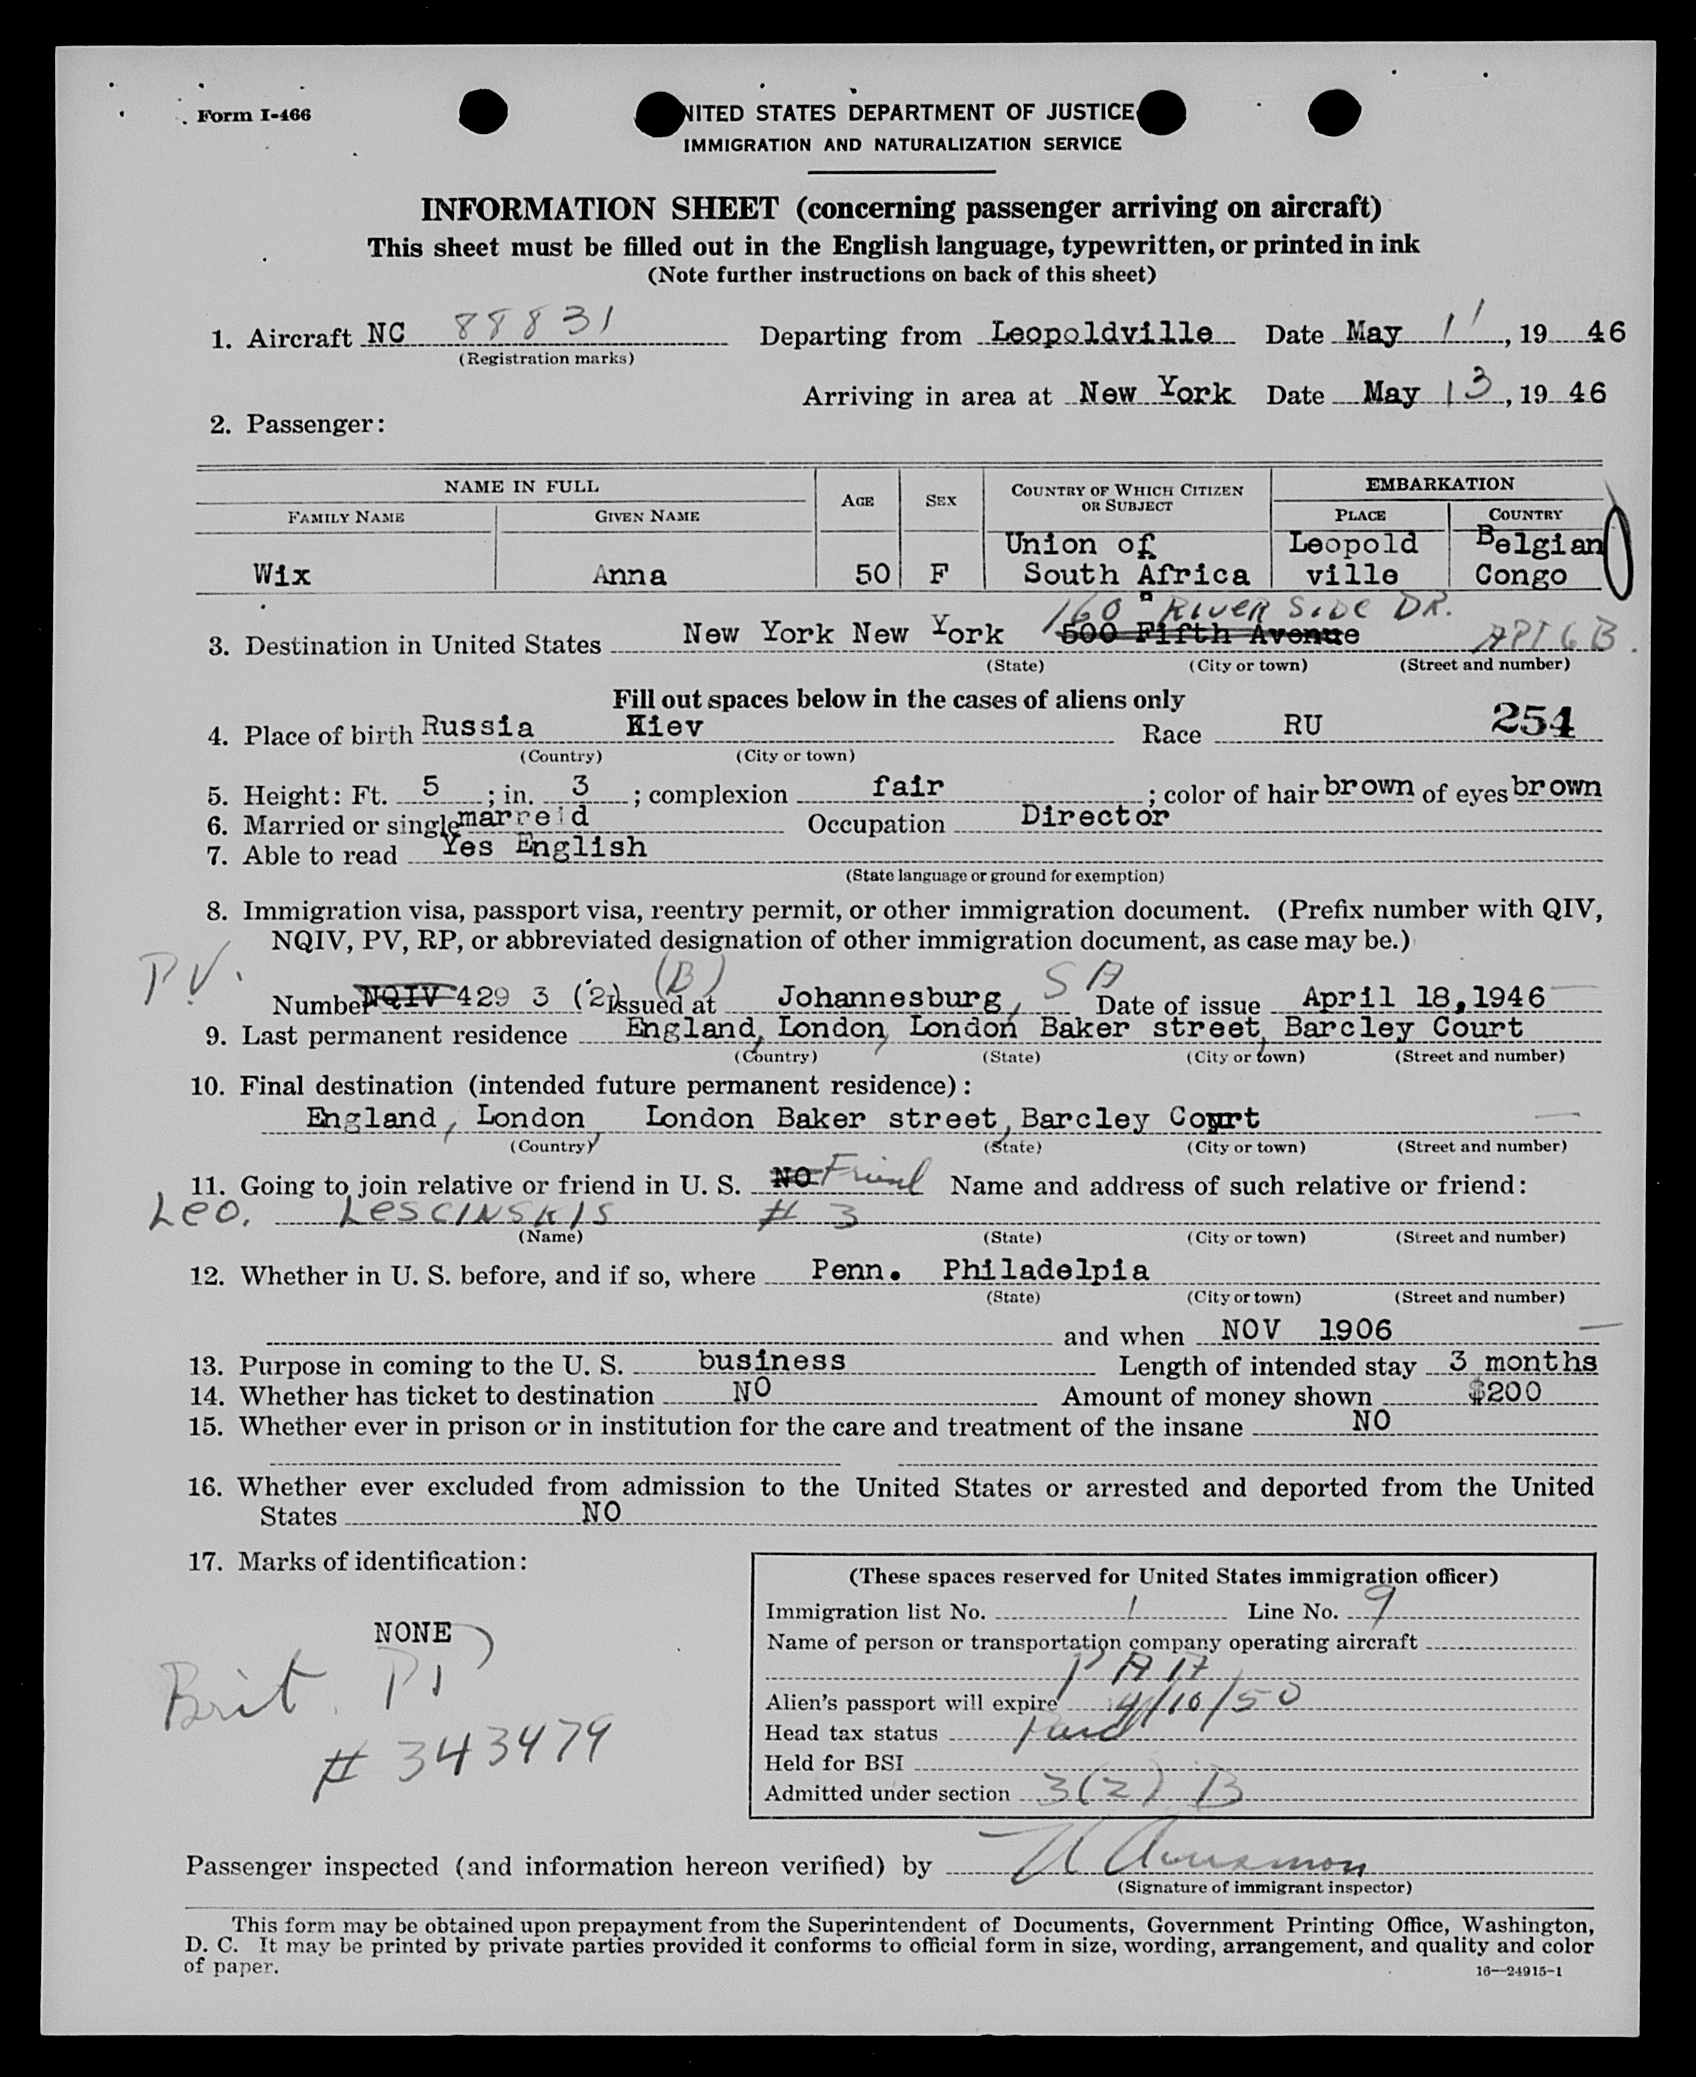 Form I-466
UNITED STATES DEPARTMENT OF JUSTICE
IMMIGRATION AND NATURALIZATION SERVICE
INFORMATION SHEET (concerning passenger arriving on aircraft)
This sheet must be filled out in the English language, typewritten, or printed in ink
(Note further instructions on back of this sheet)
1. Aircraft NC 88831 Departing from Leopoldville Date May 11, 19 46
(Registration marks)
Arriving in area at New York Date May 13, 19 46
2. Passenger:
NAME IN FULL AGE SEX COUNTRY OF WHICH CITIZEN OR SUBJECT EMBARKATION
FAMILY NAME GIVEN NAME PLACE COUNTRY
Union of Leopold Belgian
Wix Anna 50 F South Africa ville Congo
160 RIVER SIDE DR.
3. Destination in United States New York New York 500 Fifth Avenue APT 6 B.
(State) (City or town) (Street and number)
Fill out spaces below in the cases of aliens only
4. Place of birth Russia Kiev Race RU 254
(Country) (City or town)
5. Height: Ft. 5; in. 3; complexion fair; color of hair brown of eyes brown
6. Married or single marreid Occupation Director
7. Able to read Yes English
(State language or ground for exemption)
8. Immigration visa, passport visa, reentry permit, or other immigration document. (Prefix number with QIV,
NQIV, PV, RP, or abbreviated designation of other immigration document, as case may be.)
P.V. (B) SA
Number NQIV 429 3 (2) Issued at Johannesburg, Date of issue April 18, 1946
9. Last permanent residence England, London, London Baker street, Barcley Court
(Country) (State) (City or town) (Street and number)
10. Final destination (intended future permanent residence):
England, London, London Baker street, Barcley Court
(Country) (State) (City or town) (Street and number)
11. Going to join relative or friend in U. S. NO Friend Name and address of such relative or friend:
Leo. LESCINSKIS # 3
(Name) (State) (City or town) (Street and number)
12. Whether in U. S. before, and if so, where Penn. Philadelpia
(State) (City or town) (Street and number)
and when NOV 1906
13. Purpose in coming to the U. S. business Length of intended stay 3 months
14. Whether has ticket to destination NO Amount of money shown $200
15. Whether ever in prison or in institution for the care and treatment of the insane NO
16. Whether ever excluded from admission to the United States or arrested and deported from the United
States NO
17. Marks of identification:
NONE
Brit. PP
# 343479
(These spaces reserved for United States immigration officer)
Immigration list No. 1 Line No. 9
Name of person or transportation company operating aircraft
PAA
Alien's passport will expire 4/10/50
Head tax status Paid
Held for BSI
Admitted under section 3(2) B
Passenger inspected (and information hereon verified) by
(Signature of immigrant inspector)
This form may be obtained upon prepayment from the Superintendent of Documents, Government Printing Office, Washington,
D. C. It may be printed by private parties provided it conforms to official form in size, wording, arrangement, and quality and color
of paper.
16—24915-1